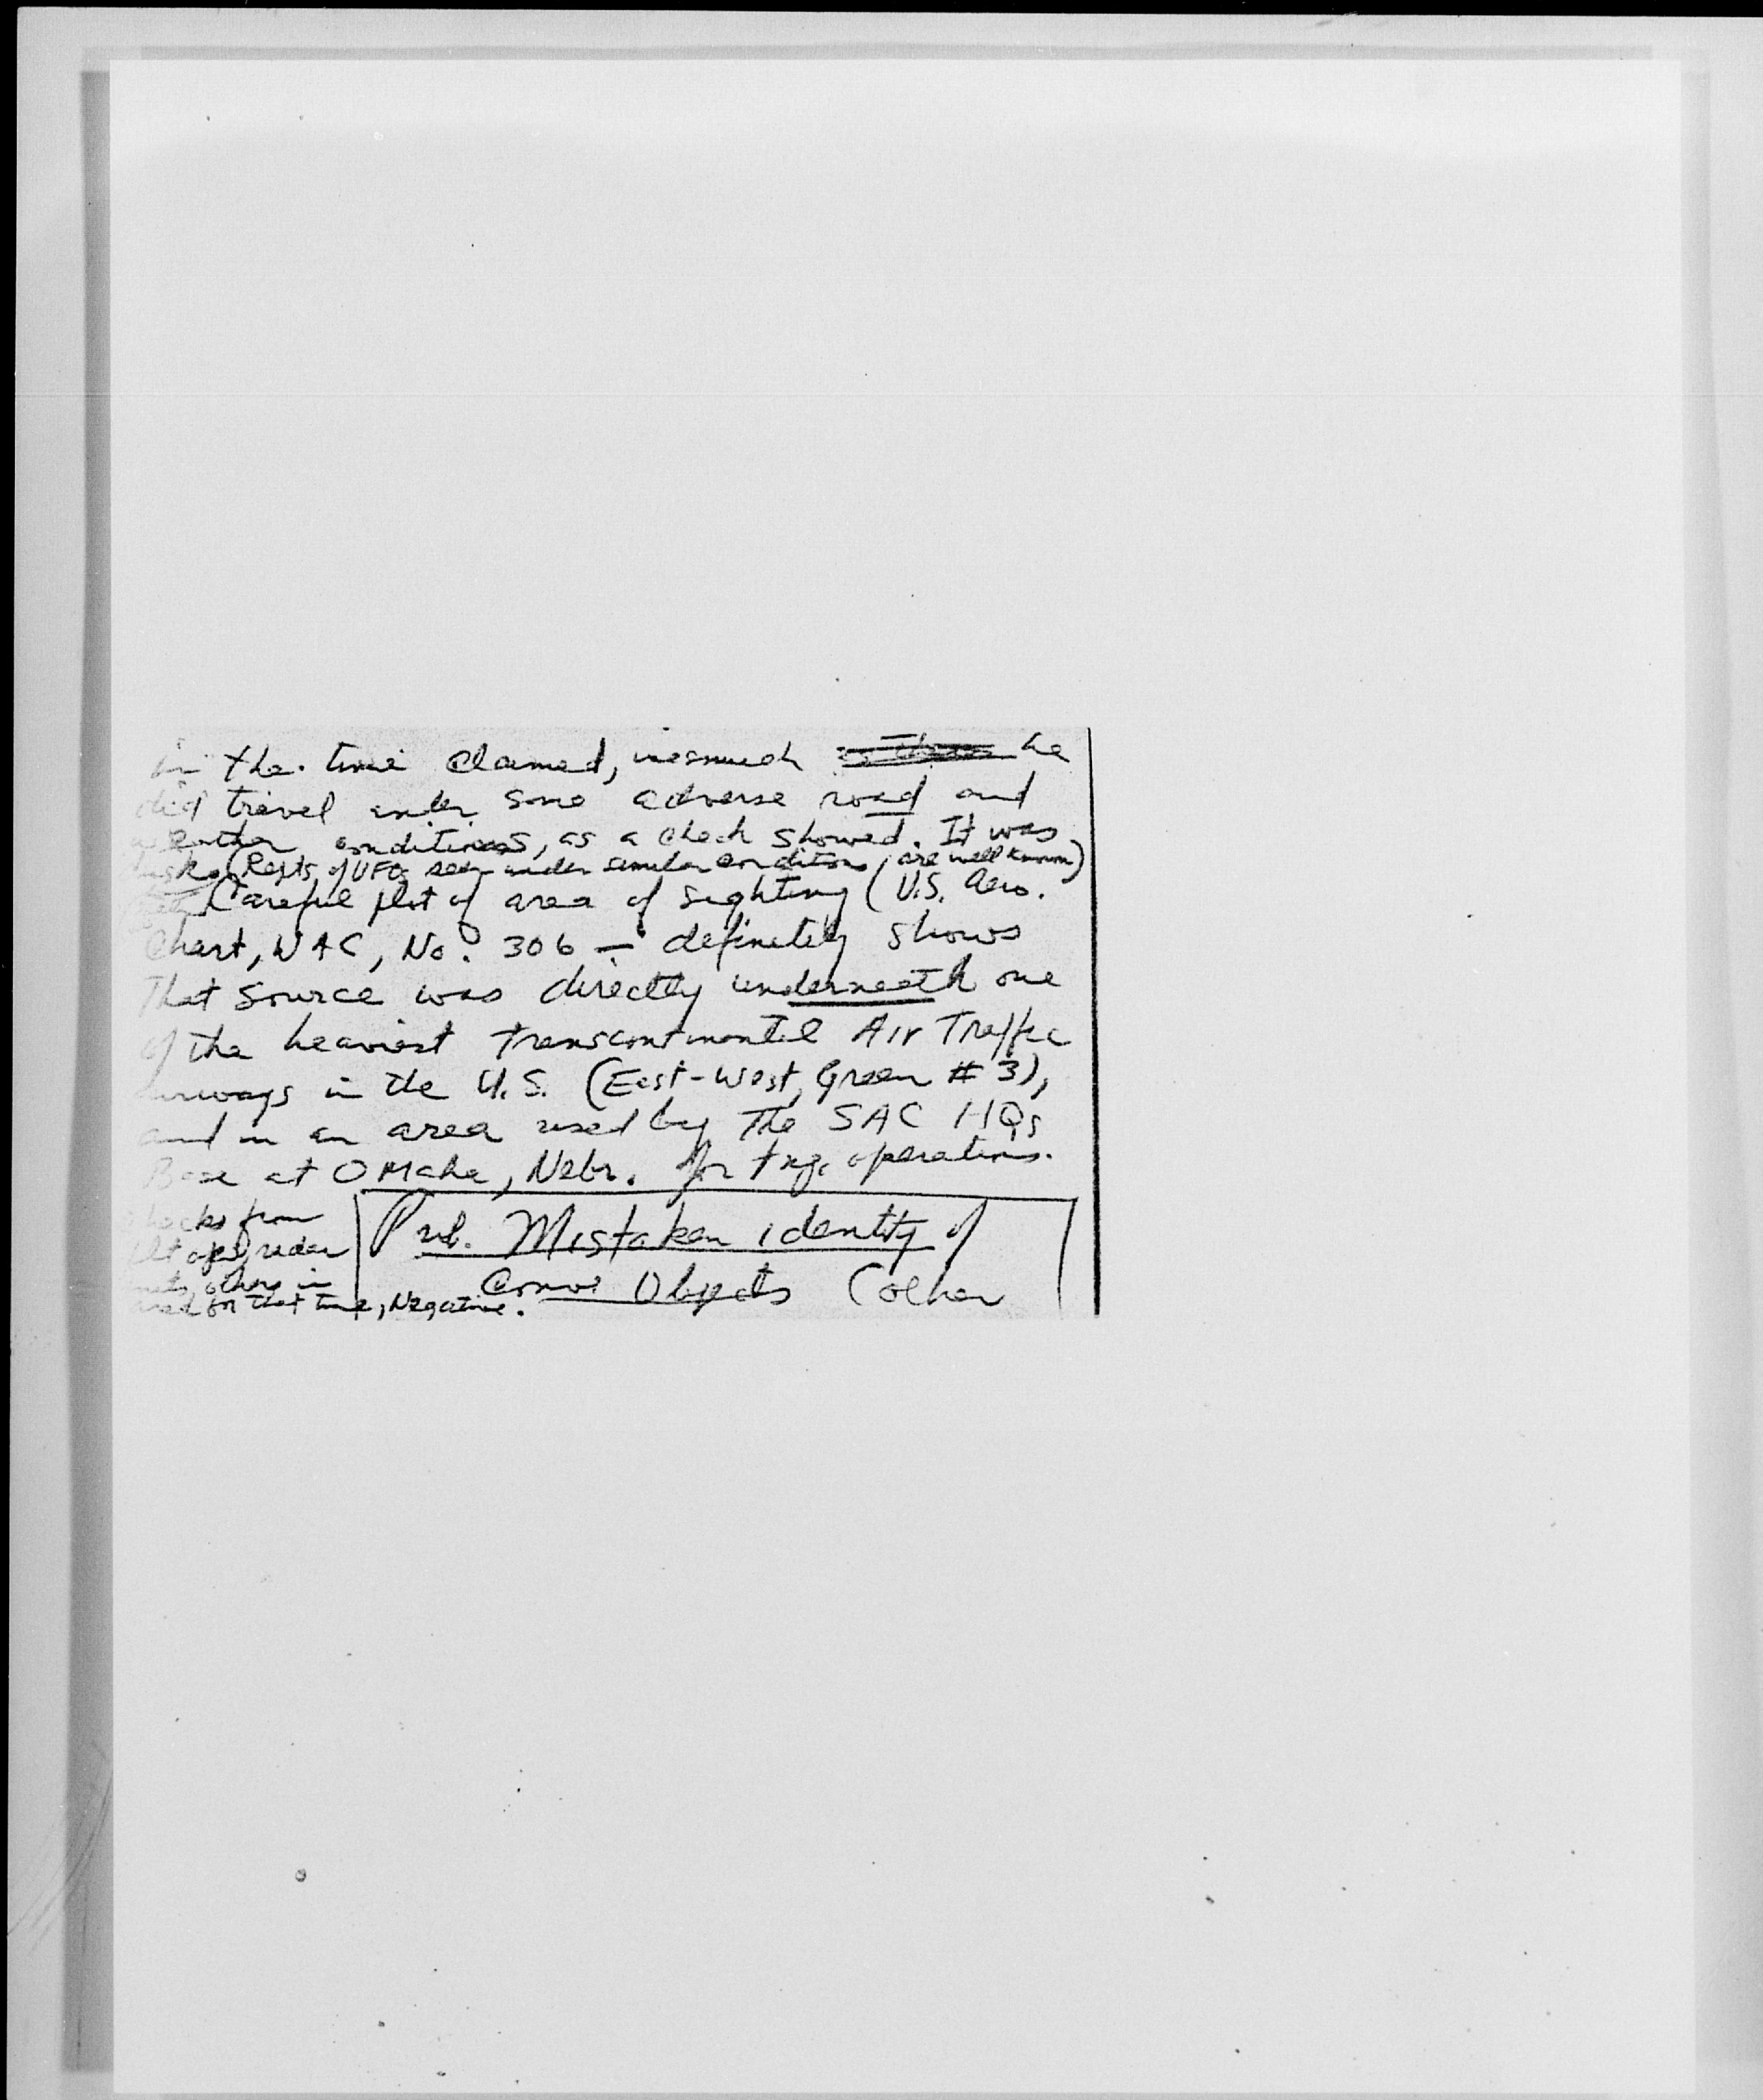 in the time claimed, inasmuch he
did travel under some adverse road and
weather conditions, as a check showed. It was
(Repts of UFOs seen under similar conditions, are well known)
Careful plot of area of sighting (U.S. Aero.
Chart, WAC, No. 306 — definitely shows
That source was directly underneath one
of the heaviest transcontinental Air Traffic
airways in the U.S. (East-West, Green #3),
and in an area used by The SAC HQs
Base at Omaha, Nebr. for tng. operations.
Prob. Mistaken identity of
Conv. Objects (other
checks from
flt ops, radar
others in
area for that time, Negative.